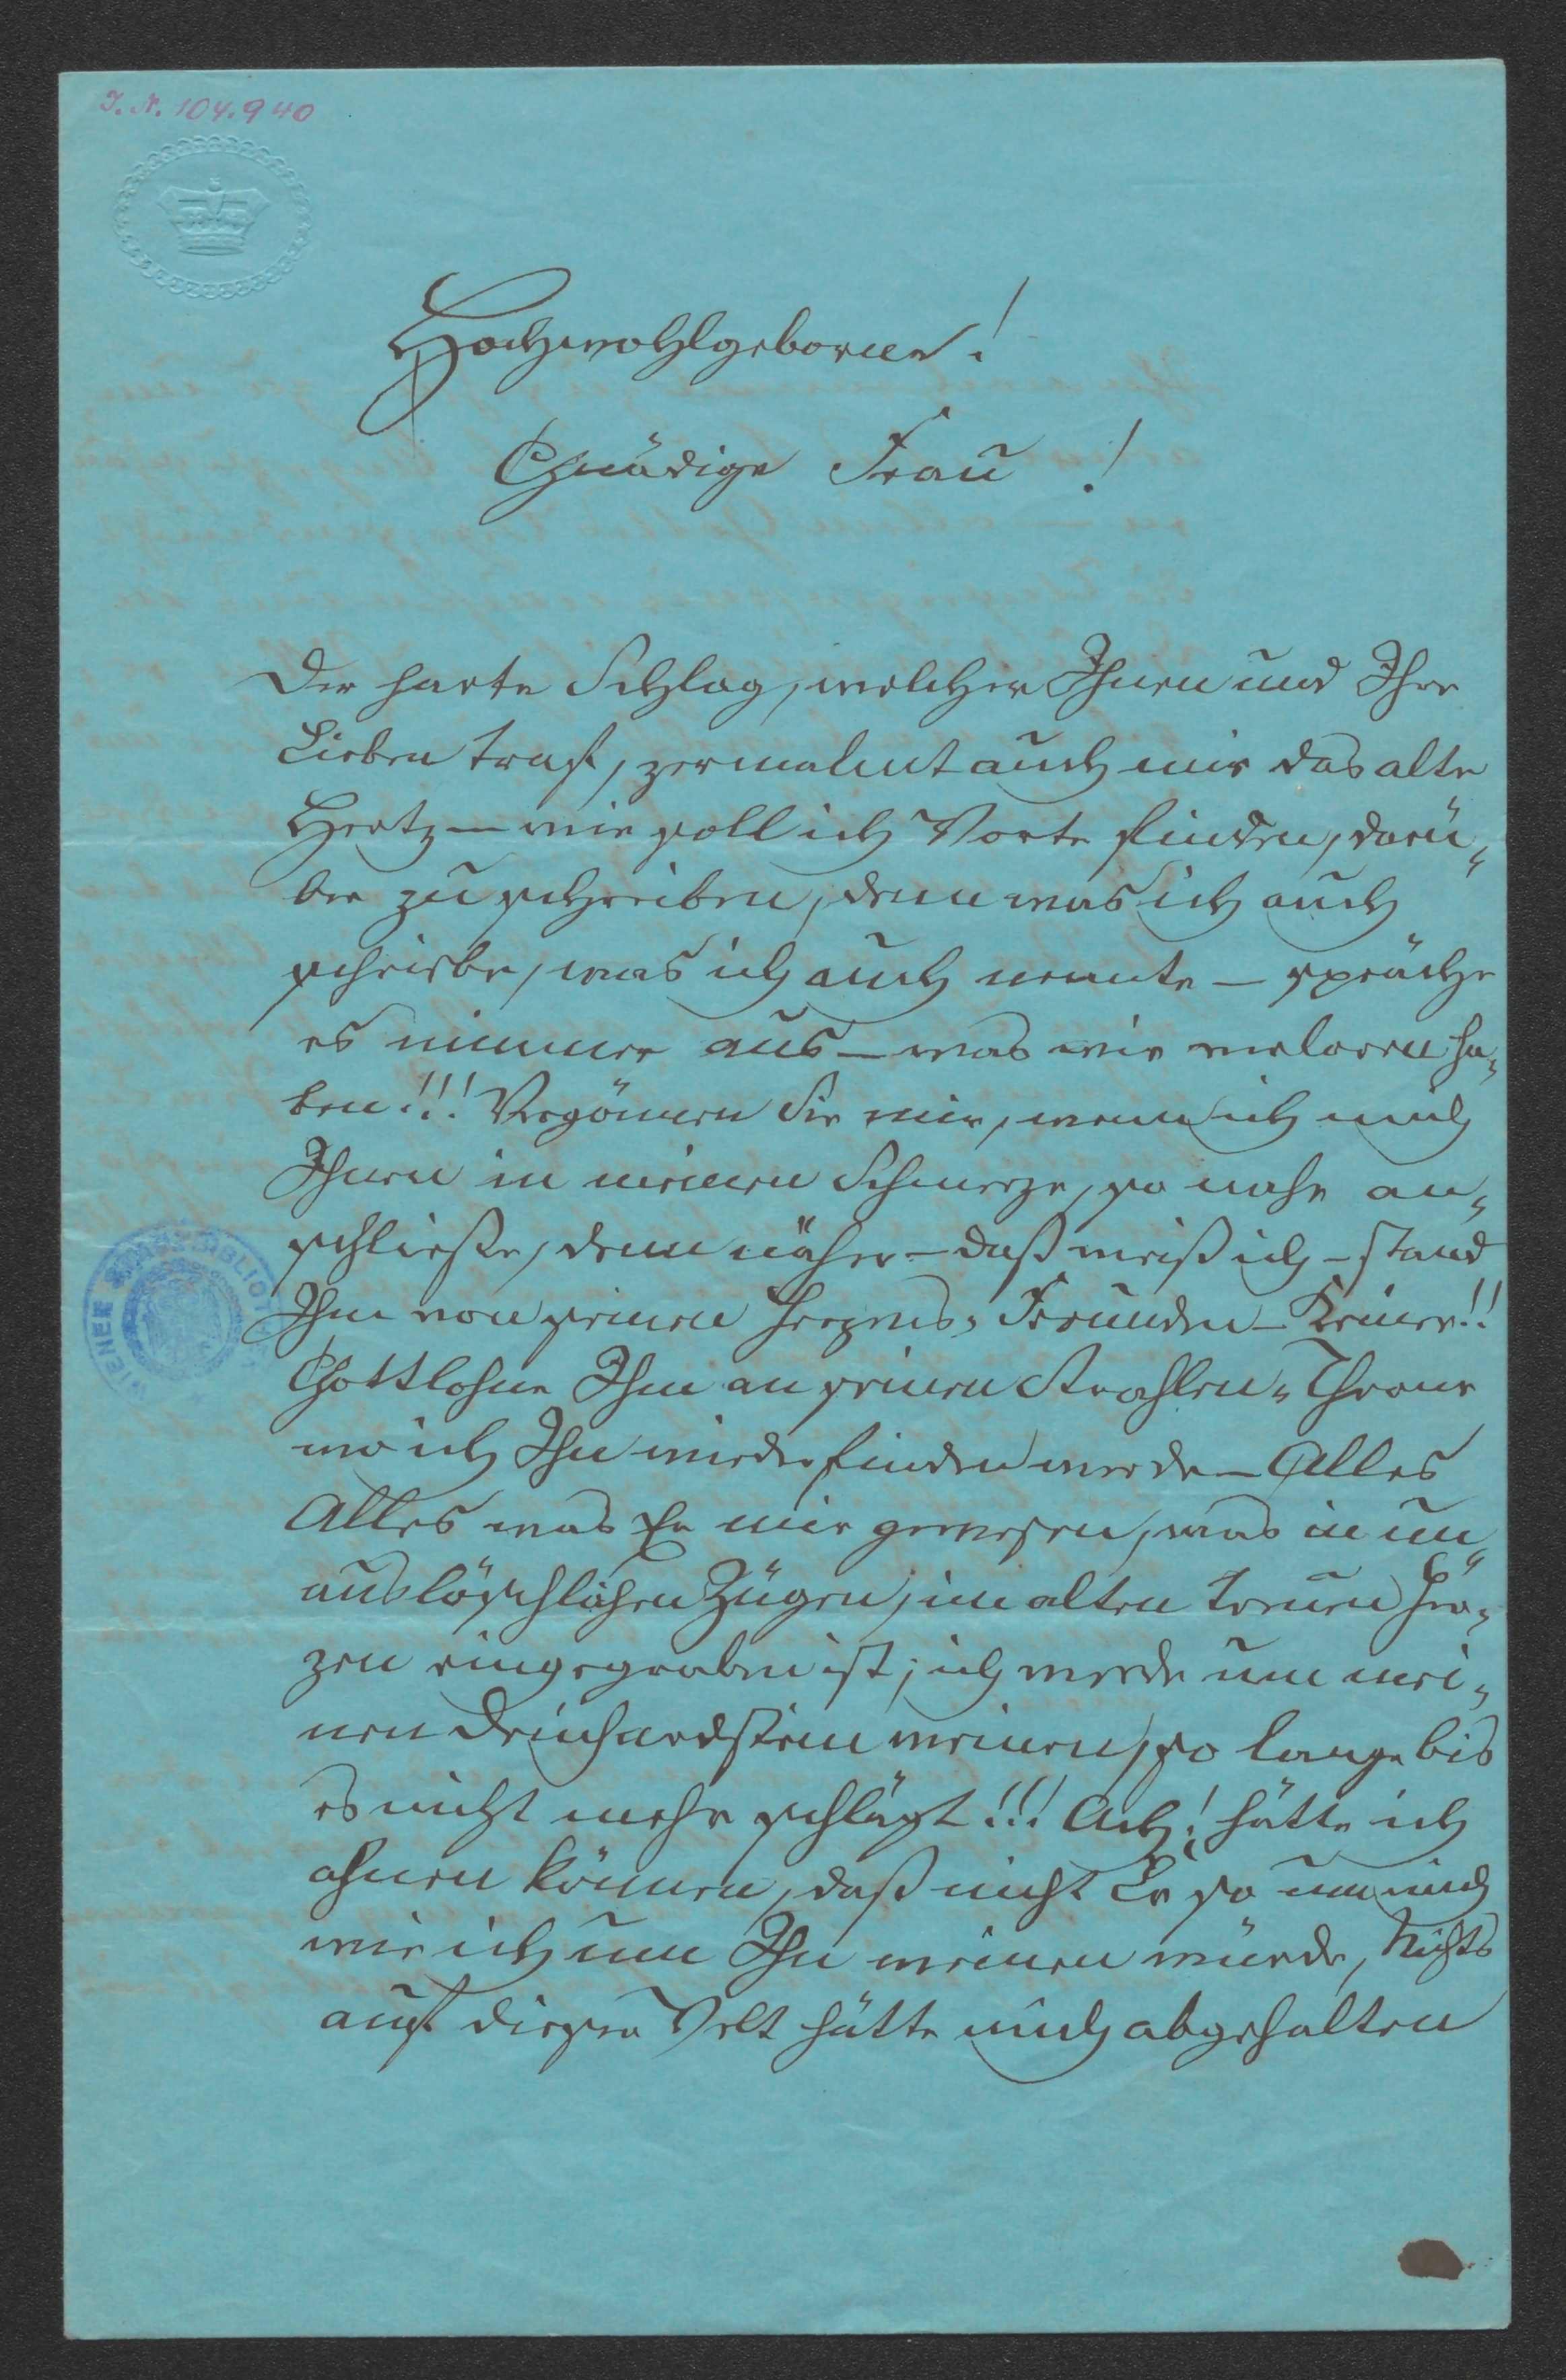 I. N. 104.940
Hochwohlgeborne!
Gnädige Frau!
Der harte Schlag, welcher Ihnen und Ihre
Lieben traf, zermalmt auch mir das alte
Hertz — wie soll ich Worte finden, darü„
ber zu schreiben, denn was ich auch
schriebe, was ich auch nennte — spräche
es nimmer aus — was wir verloren ha„
ben!!! Vergönnen Sie mir, wenn ich mich
Ihnen in meinem Schmerze, so nahe an„
schließe, denn näher — daß weiß ich — stand
Ihm von seinen Herzens„ Freunden — Keiner!!
Gott lohne Ihm an seinem Strahlen„ Throne
wo ich Ihn wieder finden werde — Alles
Alles was Er mir gewesen, was in un„
auslöschlichen Zügen, im alten treuen Her„
zen eingegraben ist; ich werde um mei„
nen Deinhardstein weinen, so lange bis
es nicht mehr schlägt!!! Ach! hätte ich
ahnen können, daß nicht Er so um mich
wie ich um Ihn weinen würde, Nichts
auf dieser Welt hätte mich abgehalten
WIENER STADTBIBLIOTHEK